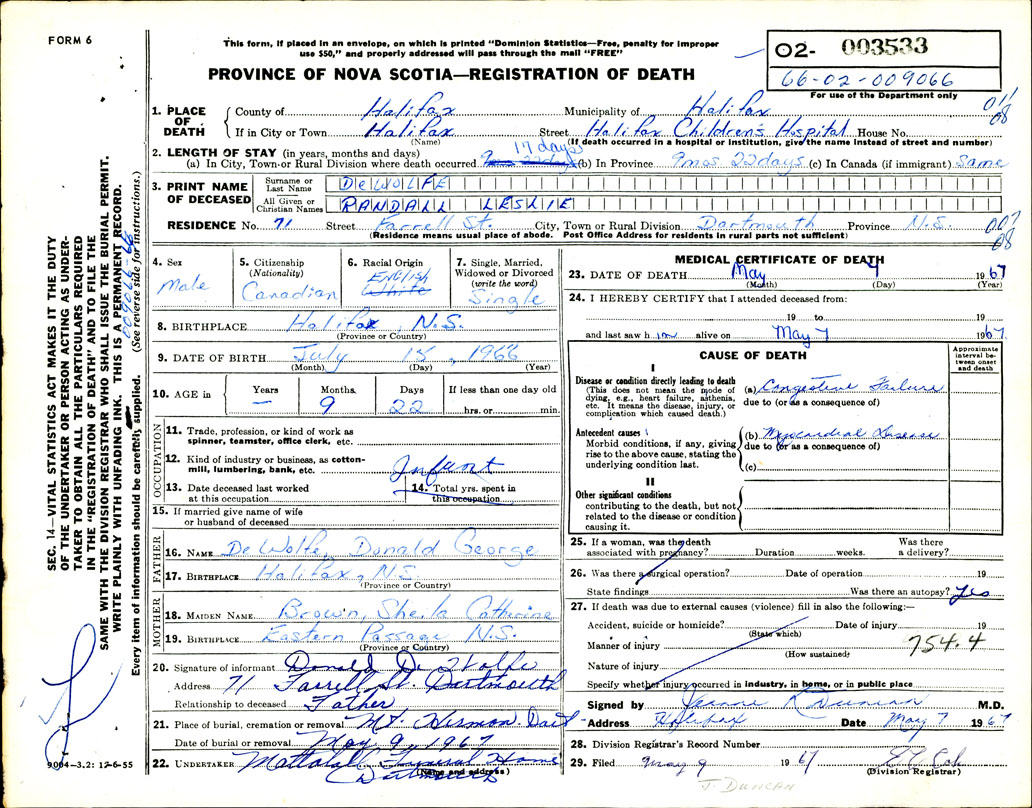 FORM 6
This form, if placed in an envelope, on which is printed "Dominion Statistics—Free, penalty for improper
use $50," and properly addressed will pass through the mail "FREE"
PROVINCE OF NOVA SCOTIA—REGISTRATION OF DEATH
02- 003533
66-02-009066
For use of the Department only
SEC. 14—VITAL STATISTICS ACT MAKES IT THE DUTY
OF THE UNDERTAKER OR PERSON ACTING AS UNDER-
TAKER TO OBTAIN ALL THE PARTICULARS REQUIRED
IN THE "REGISTRATION OF DEATH" AND TO FILE THE
SAME WITH THE DIVISION REGISTRAR WHO SHALL ISSUE THE BURIAL PERMIT.
WRITE PLAINLY WITH UNFADING INK. THIS IS A PERMANENT RECORD.
Every item of information should be carefully supplied. (See reverse side for instructions.)
009066-66
9004-3.2: 12-6-55
1. PLACE OF DEATH
County of Halifax Municipality of Halifax 011
If in City or Town Halifax Street Halifax Children's Hospital House No. 08
(Name) (If death occurred in a hospital or institution, give the name instead of street and number)
2. LENGTH OF STAY (in years, months and days) 17 days
(a) In City, Town or Rural Division where death occurred (b) In Province 9mos 22days (c) In Canada (if immigrant) Same
3. PRINT NAME OF DECEASED
Surname or Last Name DeWOLFE
All Given or Christian Names RANDALL LESLIE
RESIDENCE No. 71 Street Farrell St. City, Town or Rural Division Dartmouth Province N.S. 007
08
(Residence means usual place of abode. Post Office Address for residents in rural parts not sufficient)
4. Sex Male
5. Citizenship (Nationality) Canadian
6. Racial Origin ENGLISH White
7. Single, Married, Widowed or Divorced (write the word) Single
8. BIRTHPLACE Halifax, N.S.
(Province or Country)
9. DATE OF BIRTH July 15, 1966
(Month) (Day) (Year)
10. AGE in Years — Months 9 Days 22 If less than one day old hrs. or min.
OCCUPATION
11. Trade, profession, or kind of work as
spinner, teamster, office clerk, etc.
12. Kind of industry or business, as cotton-
mill, lumbering, bank, etc. Infant
13. Date deceased last worked
at this occupation
14. Total yrs. spent in
this occupation
15. If married give name of wife
or husband of deceased
FATHER
16. NAME DeWolfe, Donald George
17. BIRTHPLACE Halifax, N.S.
(Province or Country)
MOTHER
18. MAIDEN NAME Brown, Sheila Catherine
19. BIRTHPLACE Eastern Passage N.S.
(Province or Country)
20. Signature of informant Donald De Wolfe
Address 71 Farrell St. Dartmouth
Relationship to deceased Father
21. Place of burial, cremation or removal Mt. Hermon. Dart
Date of burial or removal May 9, 1967
22. UNDERTAKER Mattatall Funeral Home
(Name and address)
Dartmouth
MEDICAL CERTIFICATE OF DEATH
23. DATE OF DEATH May 7 1967
(Month) (Day) (Year)
24. I HEREBY CERTIFY that I attended deceased from:
19 to 19
and last saw him alive on May 7 1967
CAUSE OF DEATH
Approximate interval between onset and death
I
Disease or condition directly leading to death
(This does not mean the mode of
dying, e.g., heart failure, asthenia,
etc. It means the disease, injury, or
complication which caused death.)
(a) Congestive Failure
due to (or as a consequence of)
Antecedent causes
Morbid conditions, if any, giving
rise to the above cause, stating the
underlying condition last.
(b) Myocardial disease
due to (or as a consequence of)
(c)
II
Other significant conditions
contributing to the death, but not
related to the disease or condition
causing it.
25. If a woman, was the death
associated with pregnancy? Duration weeks. Was there
a delivery?
26. Was there a surgical operation? Date of operation 19
State findings Was there an autopsy? Yes
27. If death was due to external causes (violence) fill in also the following:—
Accident, suicide or homicide? Date of injury 19
(State which)
Manner of injury 754.4
(How sustained)
Nature of injury
Specify whether injury occurred in industry, in home, or in public place
Signed by Duncan M.D.
Address Halifax Date May 7 1967
28. Division Registrar's Record Number
29. Filed May 9 1967
(Division Registrar)
J. DUNCAN